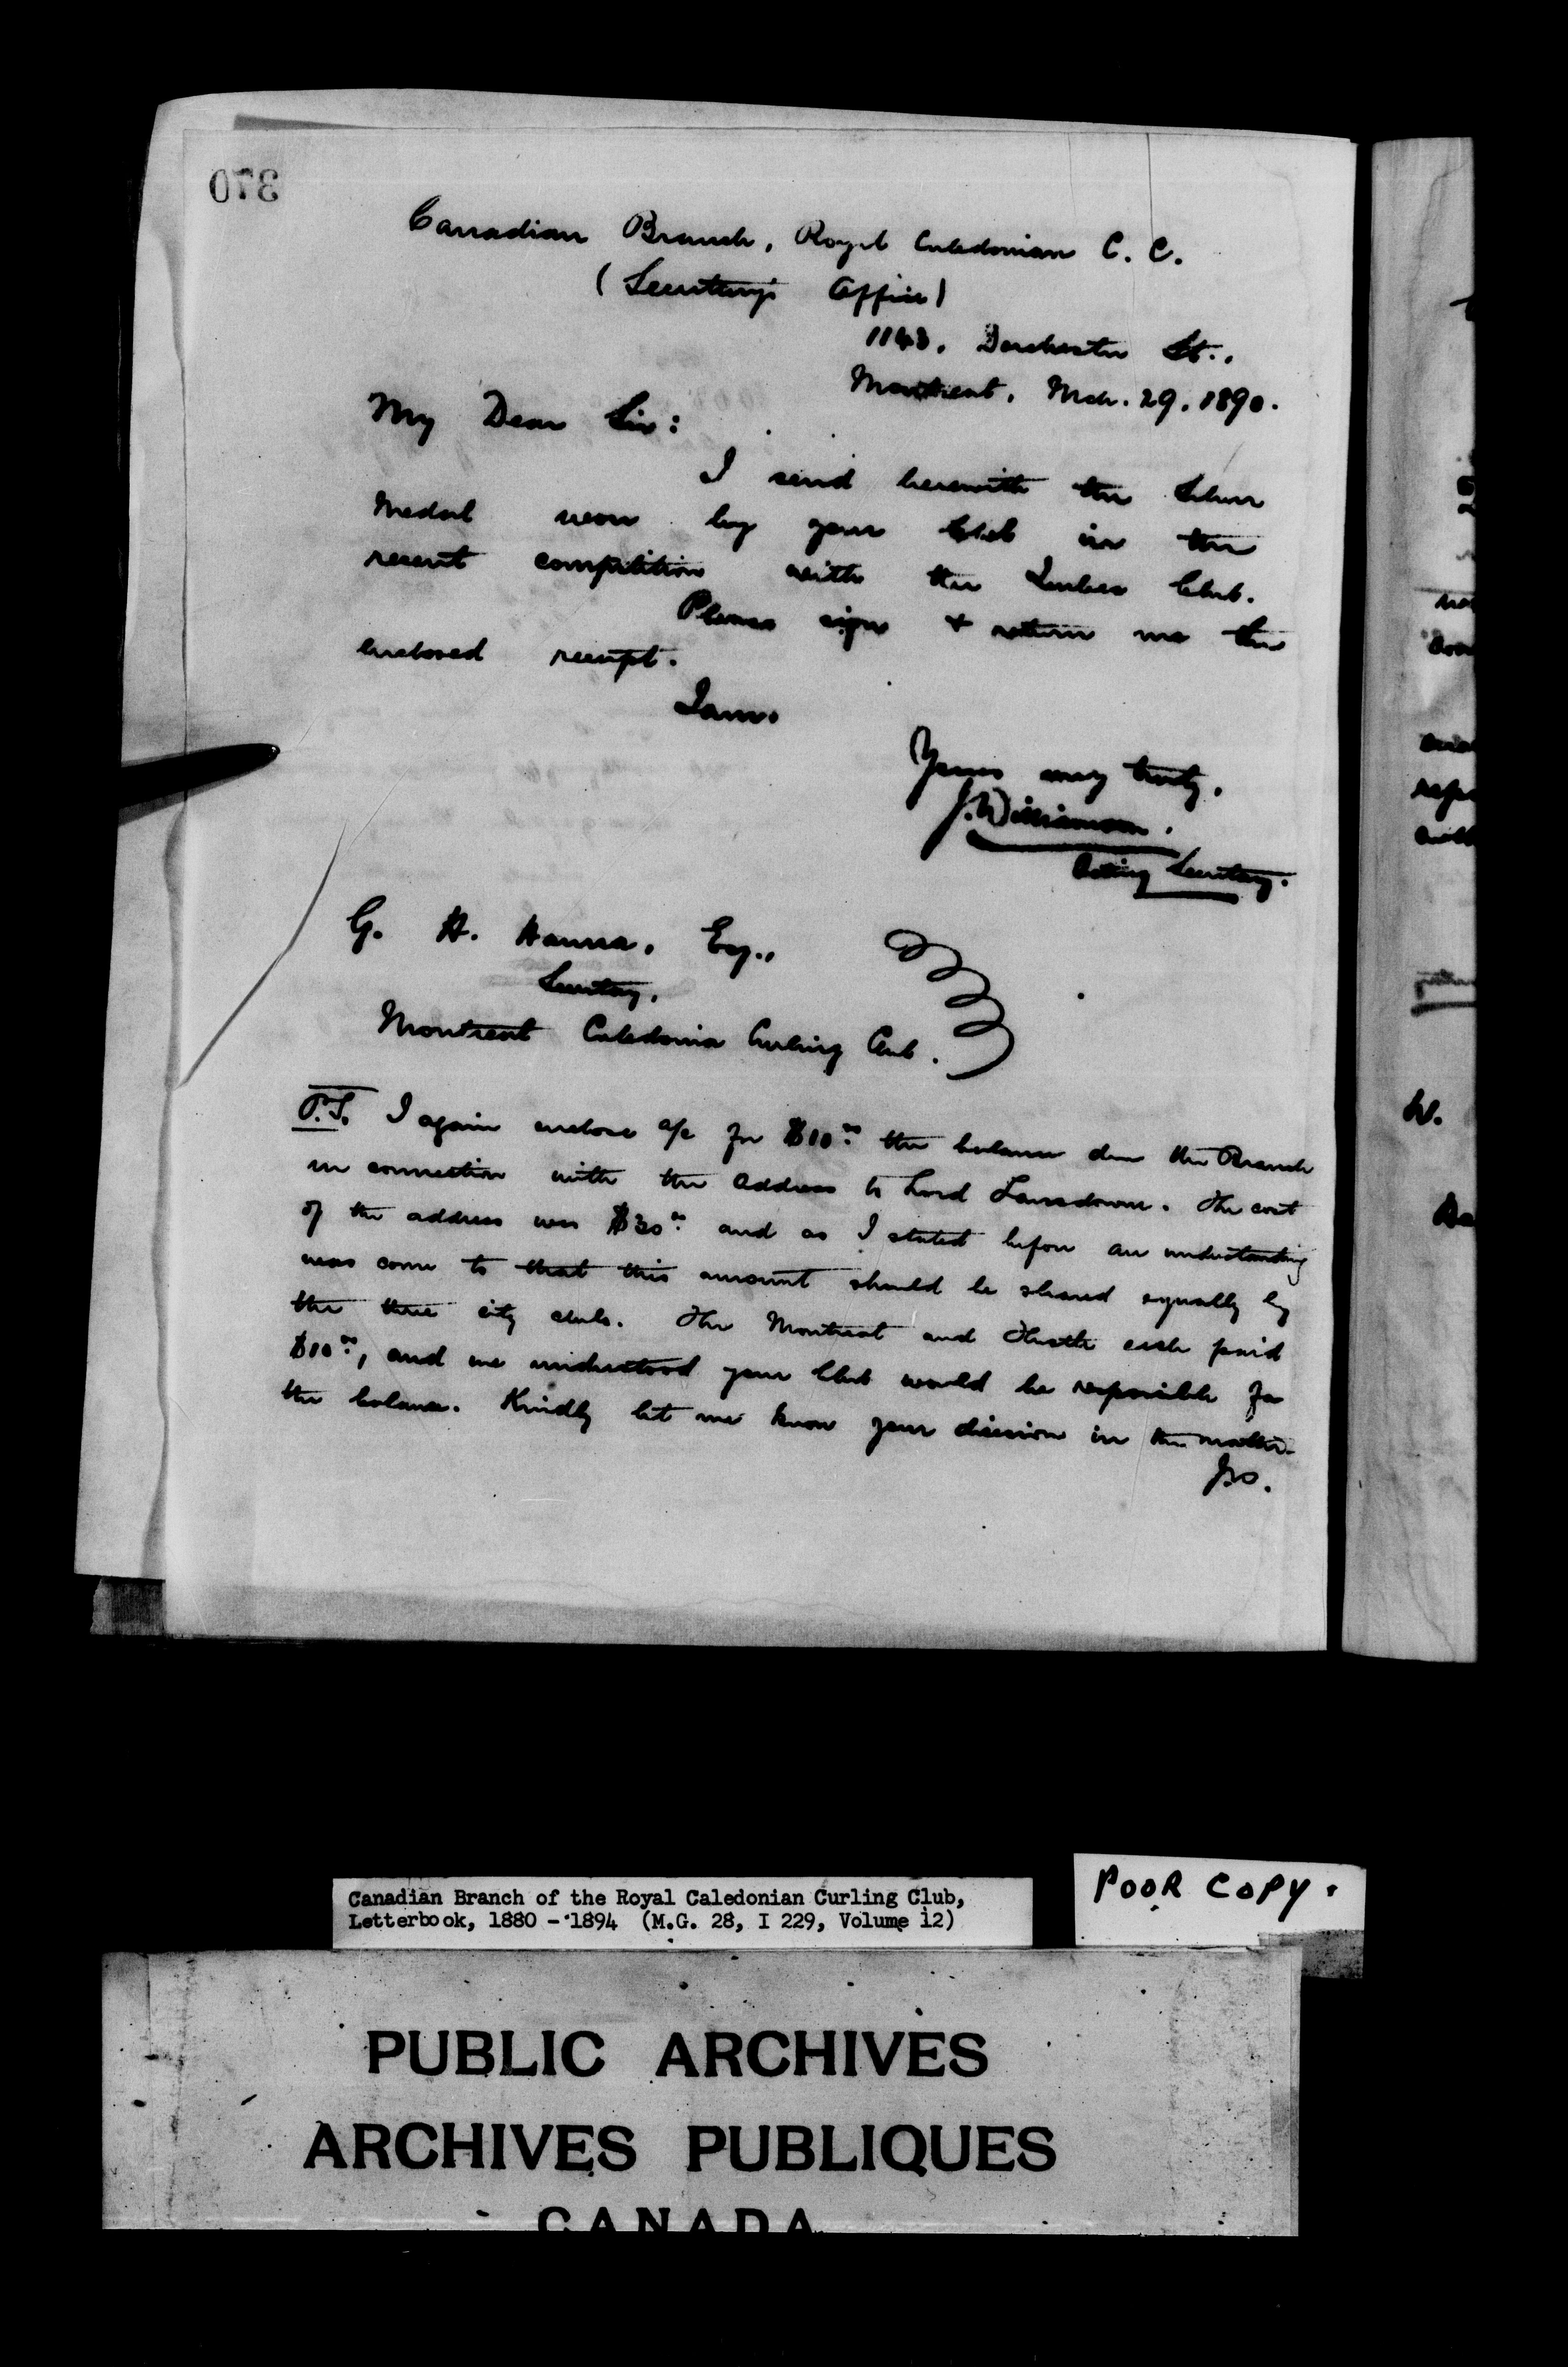 370
Canadian Branch, Royal Caledonian C. C.
(Secretary's Office)
1143, Dorchester St.,
Montreal, Mch. 29, 1890.
My Dear Sir:
I send herewith the Silver
Medal won by your Club in the
recent competition with the Quebec Club.
Please sign & return me the
enclosed receipt.
I am.
Yours very truly,
J. Williamson.
Acting Secretary.
G. H. Hanna, Esq.,
Secretary,
Montreal Caledonia Curling Club.
P.S. I again enclose a/c for $10.00 the balance due the Branch
in connection with the Address to Lord Lansdowne. The cost
of the address was $30.00 and as I stated before an understanding
was come to that this amount should be shared equally by
the three city clubs. The Montreal and Thistle each paid
$10.00, and we understood your Club would be responsible for
the balance. Kindly let me know your decision in the matter.
Canadian Branch of the Royal Caledonian Curling Club,
Letterbook, 1880 - 1894 (M.G. 28, I 229, Volume 12)
POOR COPY.
PUBLIC ARCHIVES
ARCHIVES PUBLIQUES
CANADA